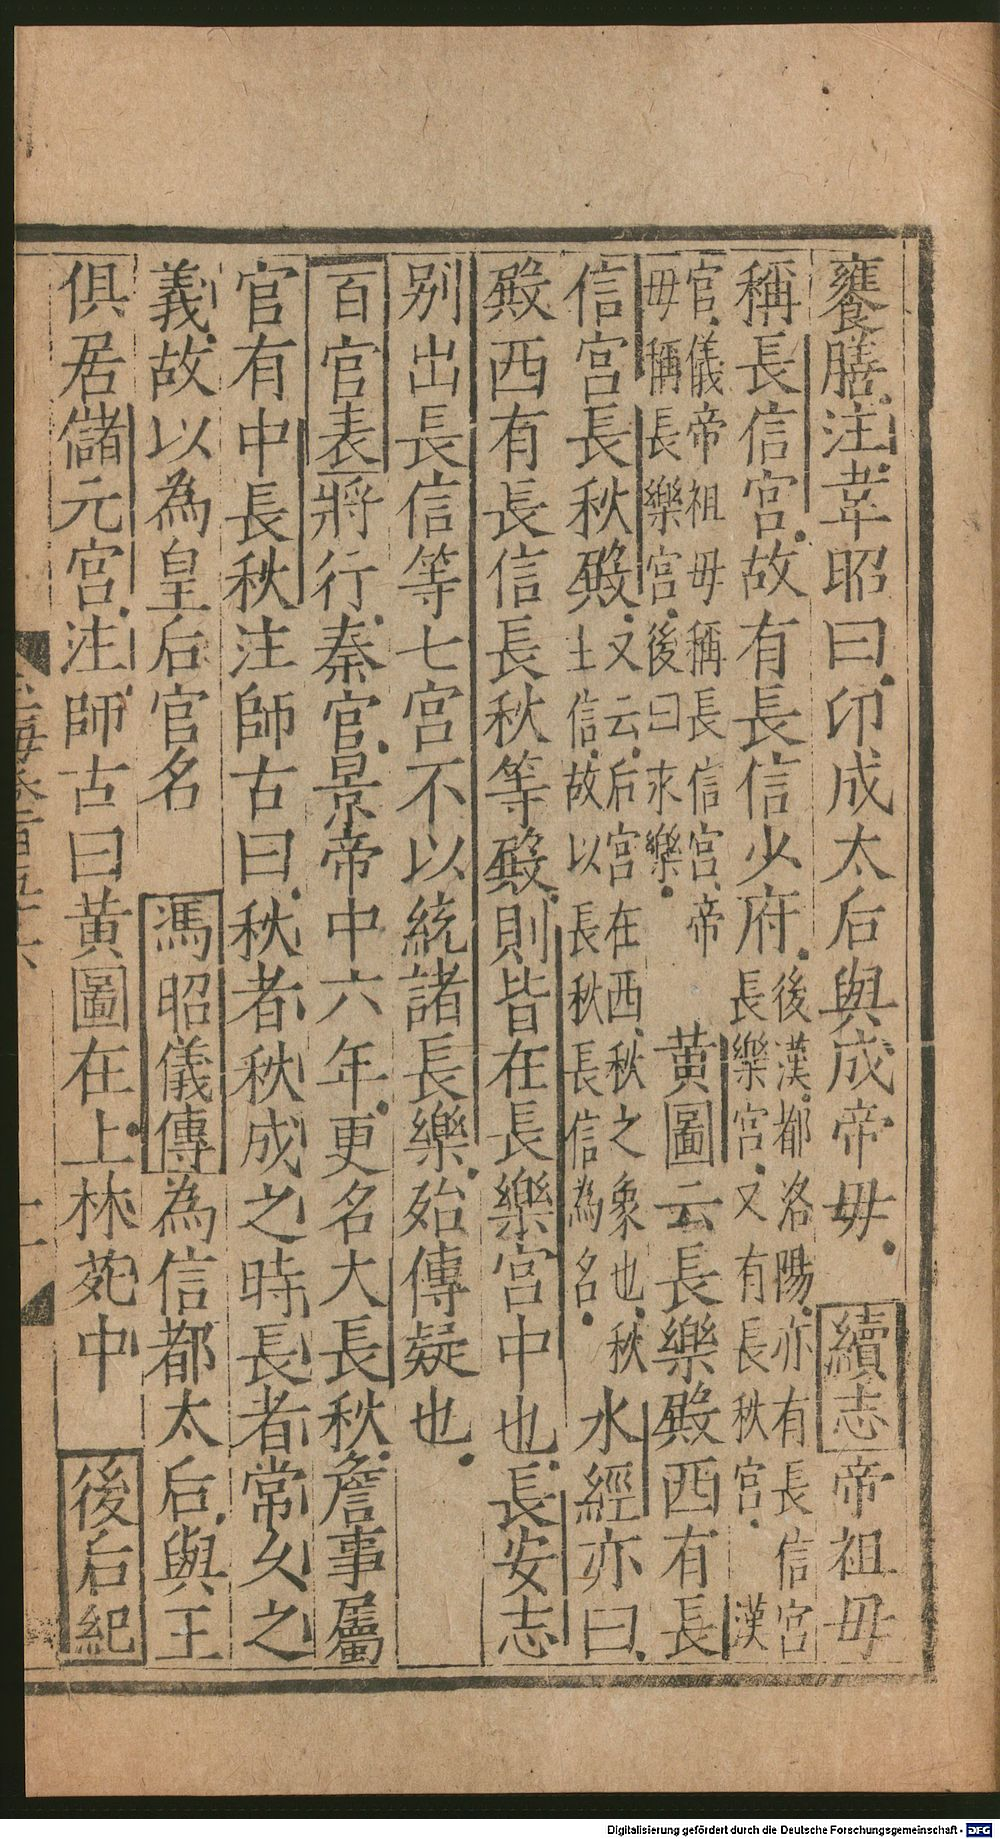 饔膳注韋昭曰印成太后與成帝毋　續志帝祖毋
稱長信宫故有長信少府後漢都洛陽亦有長信宫
長樂宫又有長秋宫　漢
官儀帝祖毋稱長信宫帝
毋稱長樂宫後曰永樂　黄圖云長樂殿西有長
信宫長秋殿又云后宫在西秋之象也秋
主信故以長秋長信為名　水經亦曰
殿西有長信長秋等殿則皆在長樂宫中也長安志
别出長信等七宫不以統諸長樂殆傳疑也
百官表將行秦官景帝中六年更名大長秋詹事屬
官有中長秋注師古曰秋者秋成之時長者常久之
義故以為皇后官名　馮昭儀傳為信都太后與王
俱居儲元宫注師古曰黄圖在上林苑中　後后紀
Digitalisierung gefördert durch die Deutsche Forschungsgemeinschaft - DFG